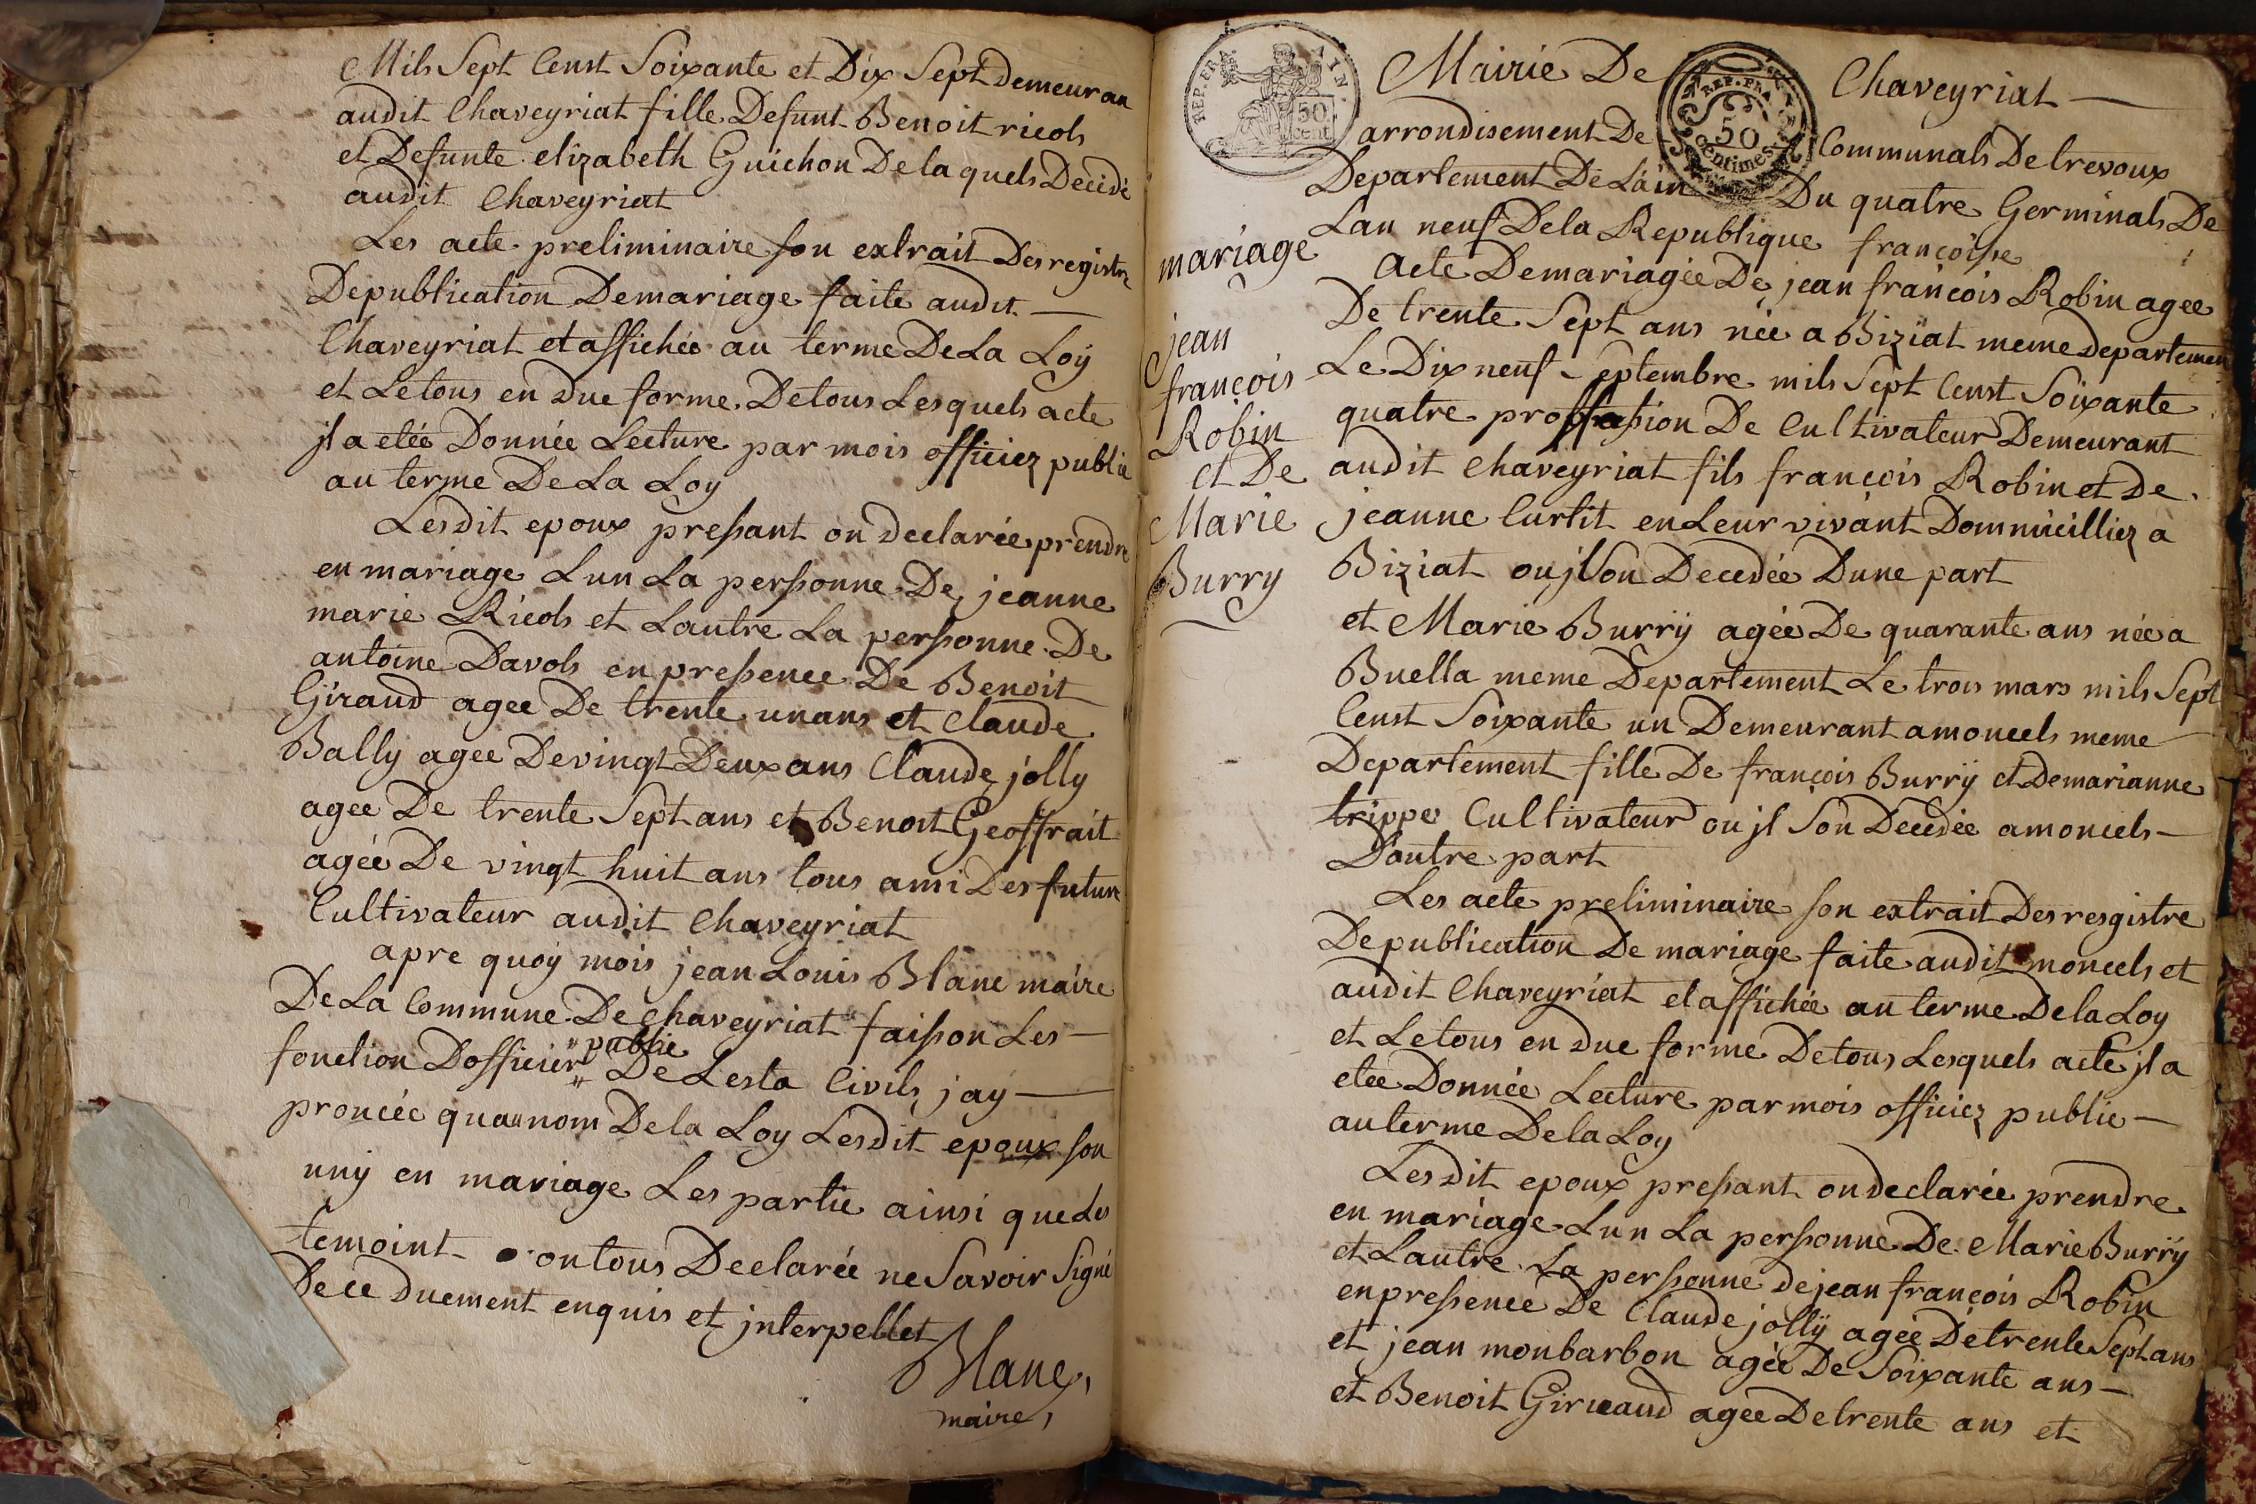 Mils Sept Censt Soixante et Dix Sept demeuran
audit Chaveyriat fille Defunt Benoit ricols
et Defunte elizabeth Guichon De la quels Decedé
audit Chaveyriat
Les acte preliminaire son extrait Des registre
De publication De mariage faite audit
Chaveyriat et affichée au terme De La Loÿ
et Le tous en due forme De tous Les quels acte
jl a etée Donnée Lecture par mois officiez public
au terme De La Loy
Les dit epoux pressant on declarée prendre
en mariage Lun La personne De jeanne
marie Ricols et Lautre La personne De
antoine Davols en pressence De Benoit
Giraud agee De trente un ans et Claude
Bally agee De vingt Deux ans Claude jolly
agee De trente Sept ans et Benoit Geoffrait
agée De vingt huit ans tous ami Des futur
Cultivateur audit Chaveyriat
apre quoÿ mois jean Louis Blanc maire
De La Commune De Chaveyriat faisson Les
fonction Dofficier public De Lesta Civils jaÿ
proncée quau nom De la Loy Les dit epoux son
unÿ en mariage Les partie ainsi que Les
temoint on tous Declarée ne Savoir Signé
De ce duement enquis et jnterpellet
Blanc,
maire,
REP. FRA. AIN
50 cent.
REP. FRA.
50
Centimes
Mairie De Chaveyriat
arrondisement De Communals De trevoux
Departement De Lain Du quatre Germinals De
Lan neuf De la Republique françoisse
mariage
jean
françois
Robin
et De
Marie
Burry
Acte De mariagée De jean françois Robin agee
De trente Sept ans née a Biziat meme departemen
Le Dix neuf Septembre mils Sept Censt Soixante
quatre proffession De Cultivateur Demeurant
audit Chaveyriat fils françois Robin et De
jeanne Curtit en Leur vivant Dommicilliez a
Biziat ou jl Son Decedée Dune part
et Marie Burrÿ agée De quarante ans née a
Buella meme Departement Le trois mars mils Sept
Censt Soixante un Demeurant a moncels meme
Departement fille De françois Burrÿ et De marianne
trippe Cultivateur ou jl Son Decedée a moncels
Dautre part
Les acte preliminaire son extrait Des resgistre
De publication De mariage faite audit moncels et
audit Chaveyriat et affichée au terme De la Loy
et Le tous en due forme De tous Lesquels acte jl a
etee Donnée Lecture par mois officiez public
au terme De la Loy
Les dit epoux pressant on declarée prendre
en mariage Lun La personne De Marie Burrÿ
et Lautre La personne de jean françois Robin
en pressence De Claude jollÿ agée De trente Sept ans
et jean monbarbon agée De Soixante ans
et Benoit Giraud agee De trente ans et